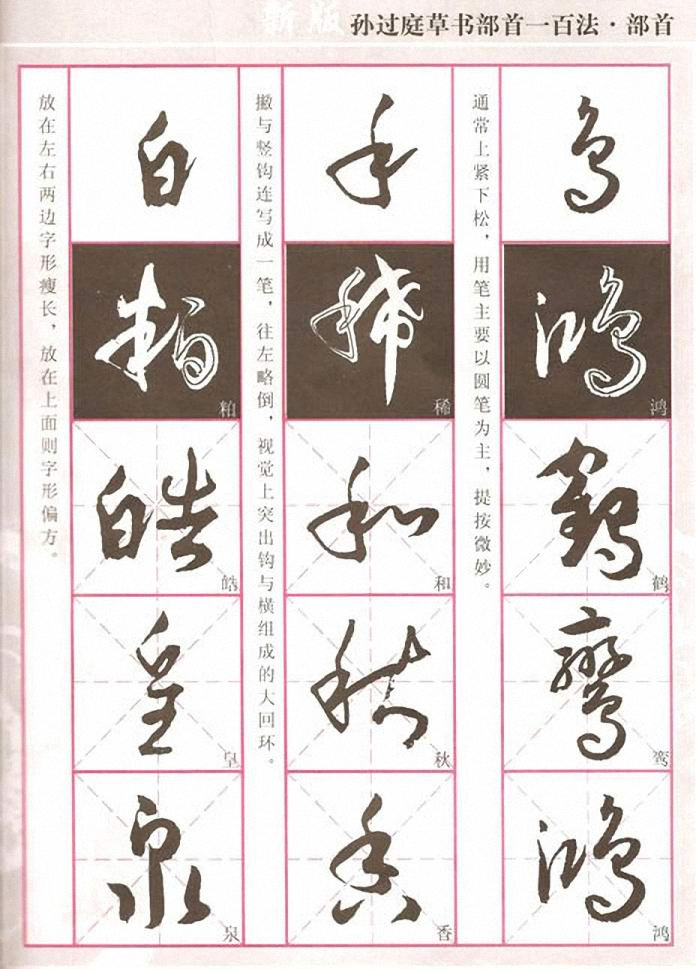 新版 孙过庭草书部首一百法·部首
鸟
鸿
鹤
鸾
鸿
通常上紧下松，用笔主要以圆笔为主，提按微妙。
禾
稀
和
秋
香
撇与竖钩连写成一笔，往左略倒，视觉上突出钩与横组成的大回环。
白
粕
皓
皇
泉
放在左右两边字形瘦长，放在上面则字形偏方。
稀
和
秋
香
鸿
鹤
鸾
鸿
粕
皓
皇
泉